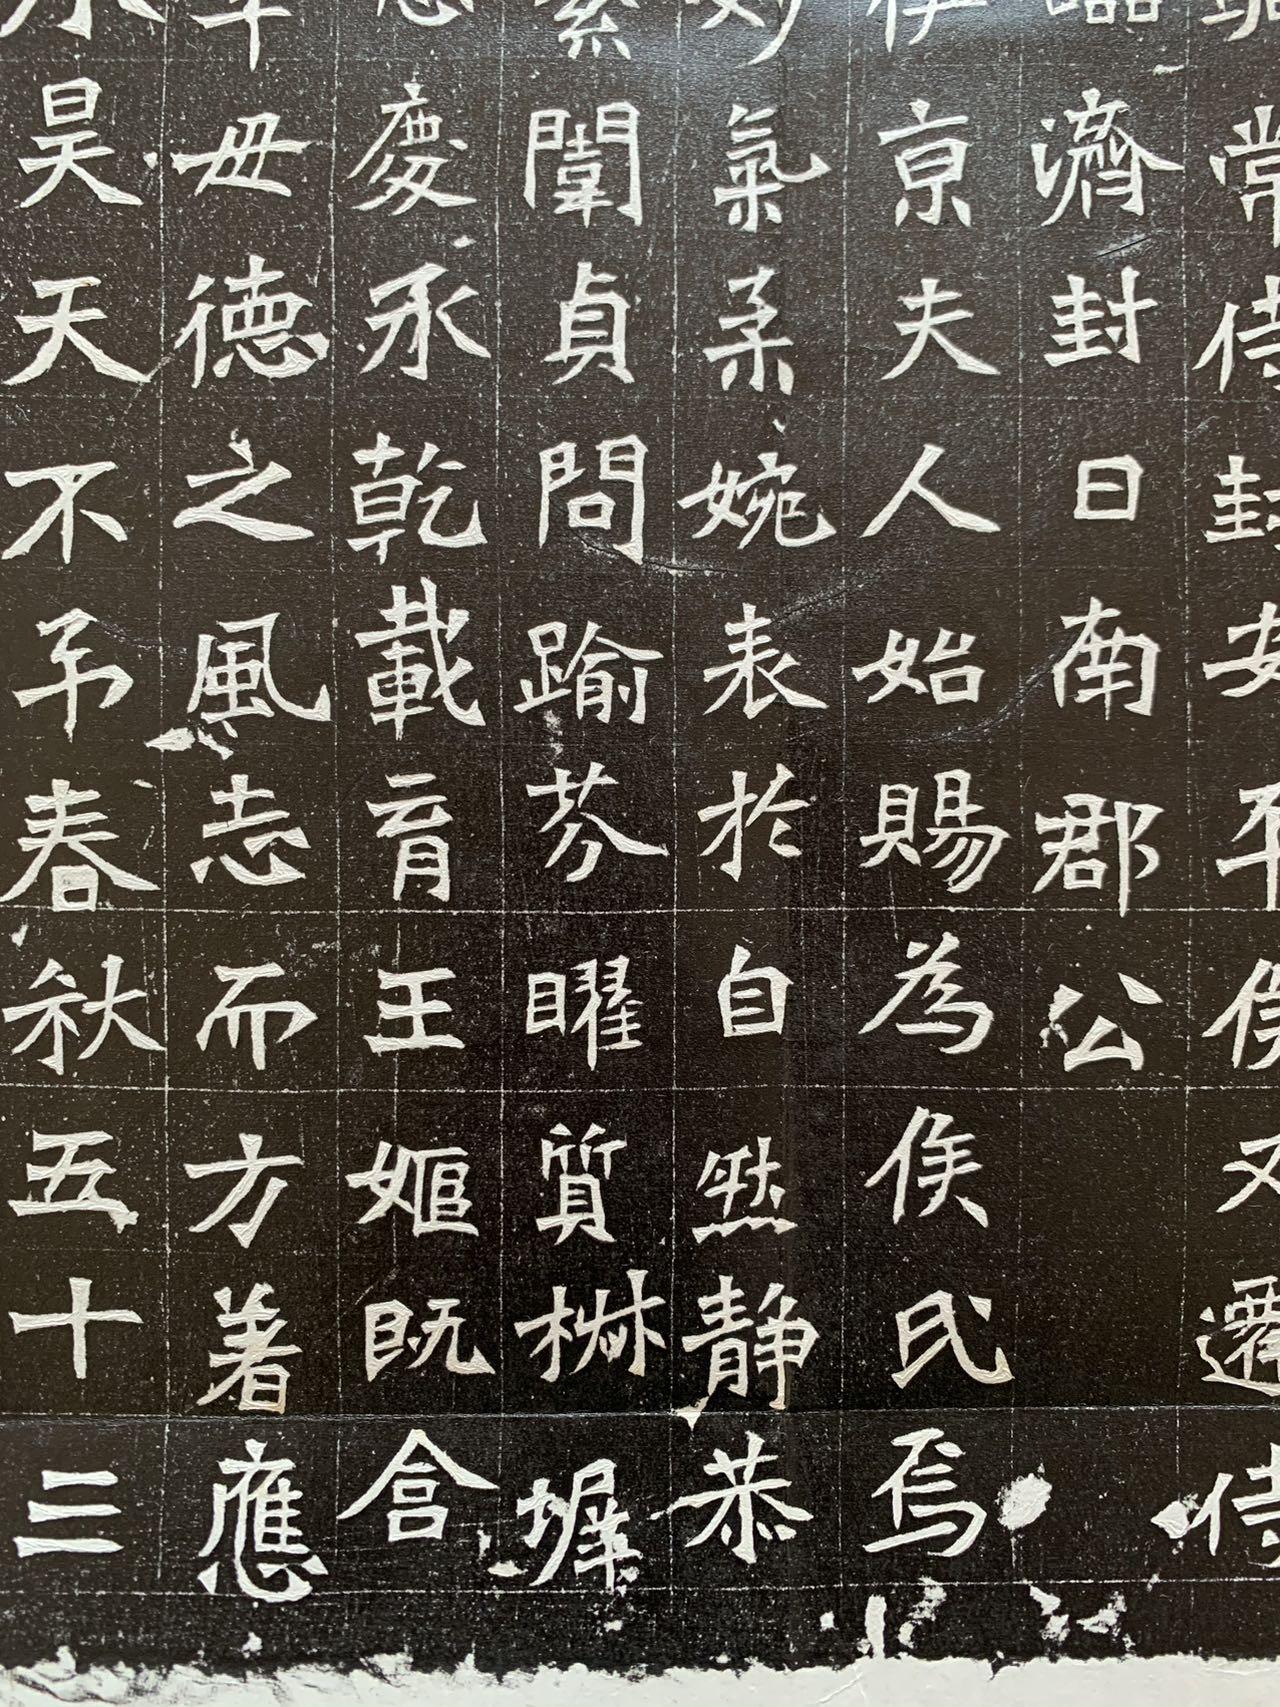 常侍封安平侯又遷侍
濟封日南郡公
伊亰夫人始賜為侯氏焉
妙氣柔婉表於自然静恭
紫闈貞問踰芬曜質椒墀
慶承乾載育王姬既含
母德之風志而方著應
昊天不弔春秋五十三